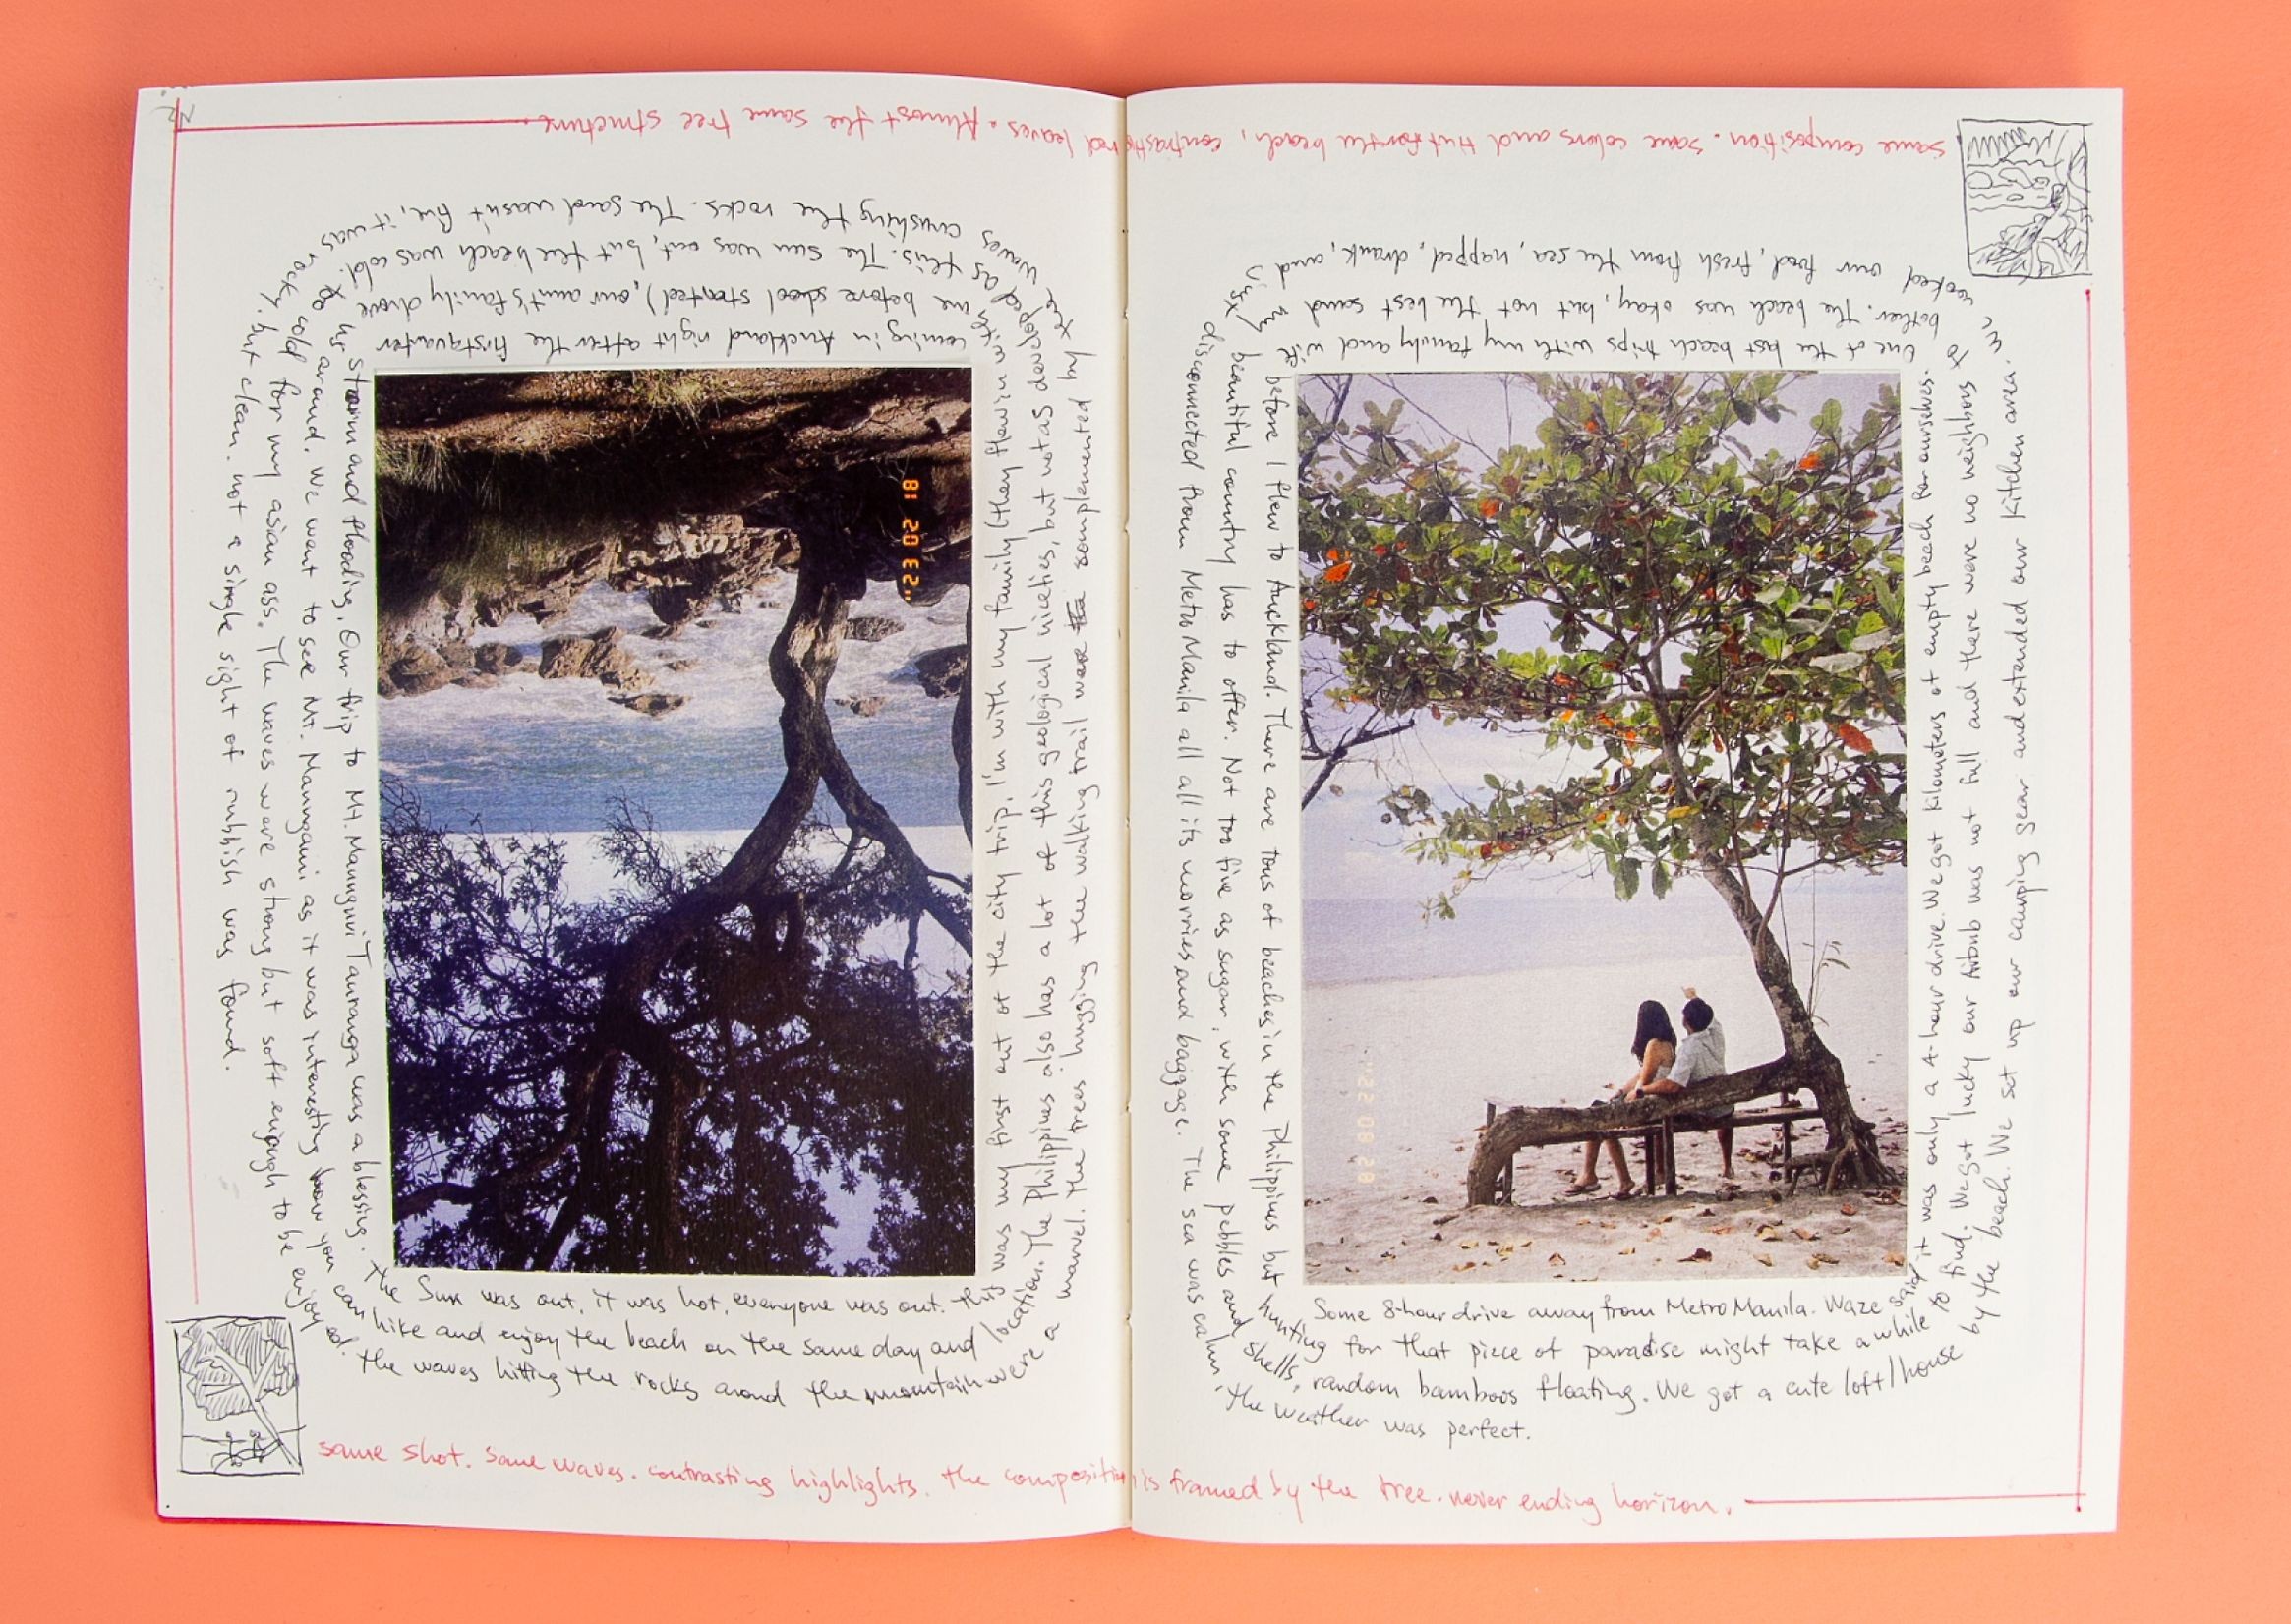 coming in Auckland right after the first quarter
hr storm and flooding. Our trip to Mt. Maunganui Tauranga was a blessing.
the Sun was out, it was hot, everyone was out. this
was my first out of the city trip, I'm with my family (they flew in with
me before school started), our aunt's family drove
us around. We went to see Mt. Maunganui as it was interesting how you
can hike and enjoy the beach on the same day and
location. The Philippines also has a lot of this geological niceties, but not as developed
as this. The sun was out, but the beach was cold.
so cold for my asian ass. The waves were strong but soft enough to be enjoyed.
the waves hitting the rocks around the mountain were a
marvel. The trees hugging the walking trail were complemented by the
waves crushing the rocks. The sand wasn't fine, it was
rocky, but clean. not a single sight of rubbish was found.
'23 02 18
Some 8-hour drive away from Metro Manila. Waze said
it was only a 4-hour drive. We got kilometers of empty beach for ourselves.
One of the last beach trips with my family and wife
before I flew to Auckland. There are tons of beaches in the Philippines but hunting
for that piece of paradise might take a while to
find. We got lucky our Airbnb was not full and there were no neighbors to
bother. The beach was okay, but not the best sand
my beautiful country has to offer. Not too fine as sugar, with some pebbles and shells,
random bamboos floating. We got a cute loft/house
by the beach. We set up our camping gear and extended our kitchen area.
We cooked our food, fresh from the sea, napped, drank, and
just disconnected from Metro Manila all all its worries and baggage. The sea was calm,
the weather was perfect.
'22 08 28
same shot. same waves. contrasting highlights. the composition is framed by the tree. never ending horizon.
same composition. same colors and tint for the beach, contrasting red leaves. Almost the same tree structure.